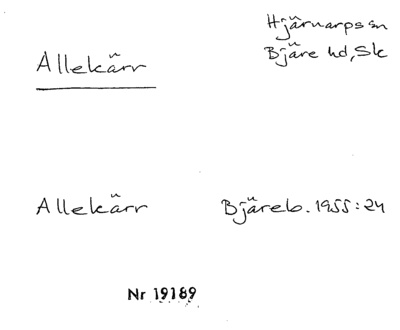 Hjärnarps sn
Allekärr Bjäre hd, Sk
Allekärr Bjäreb. 1955:24
Nr 19189